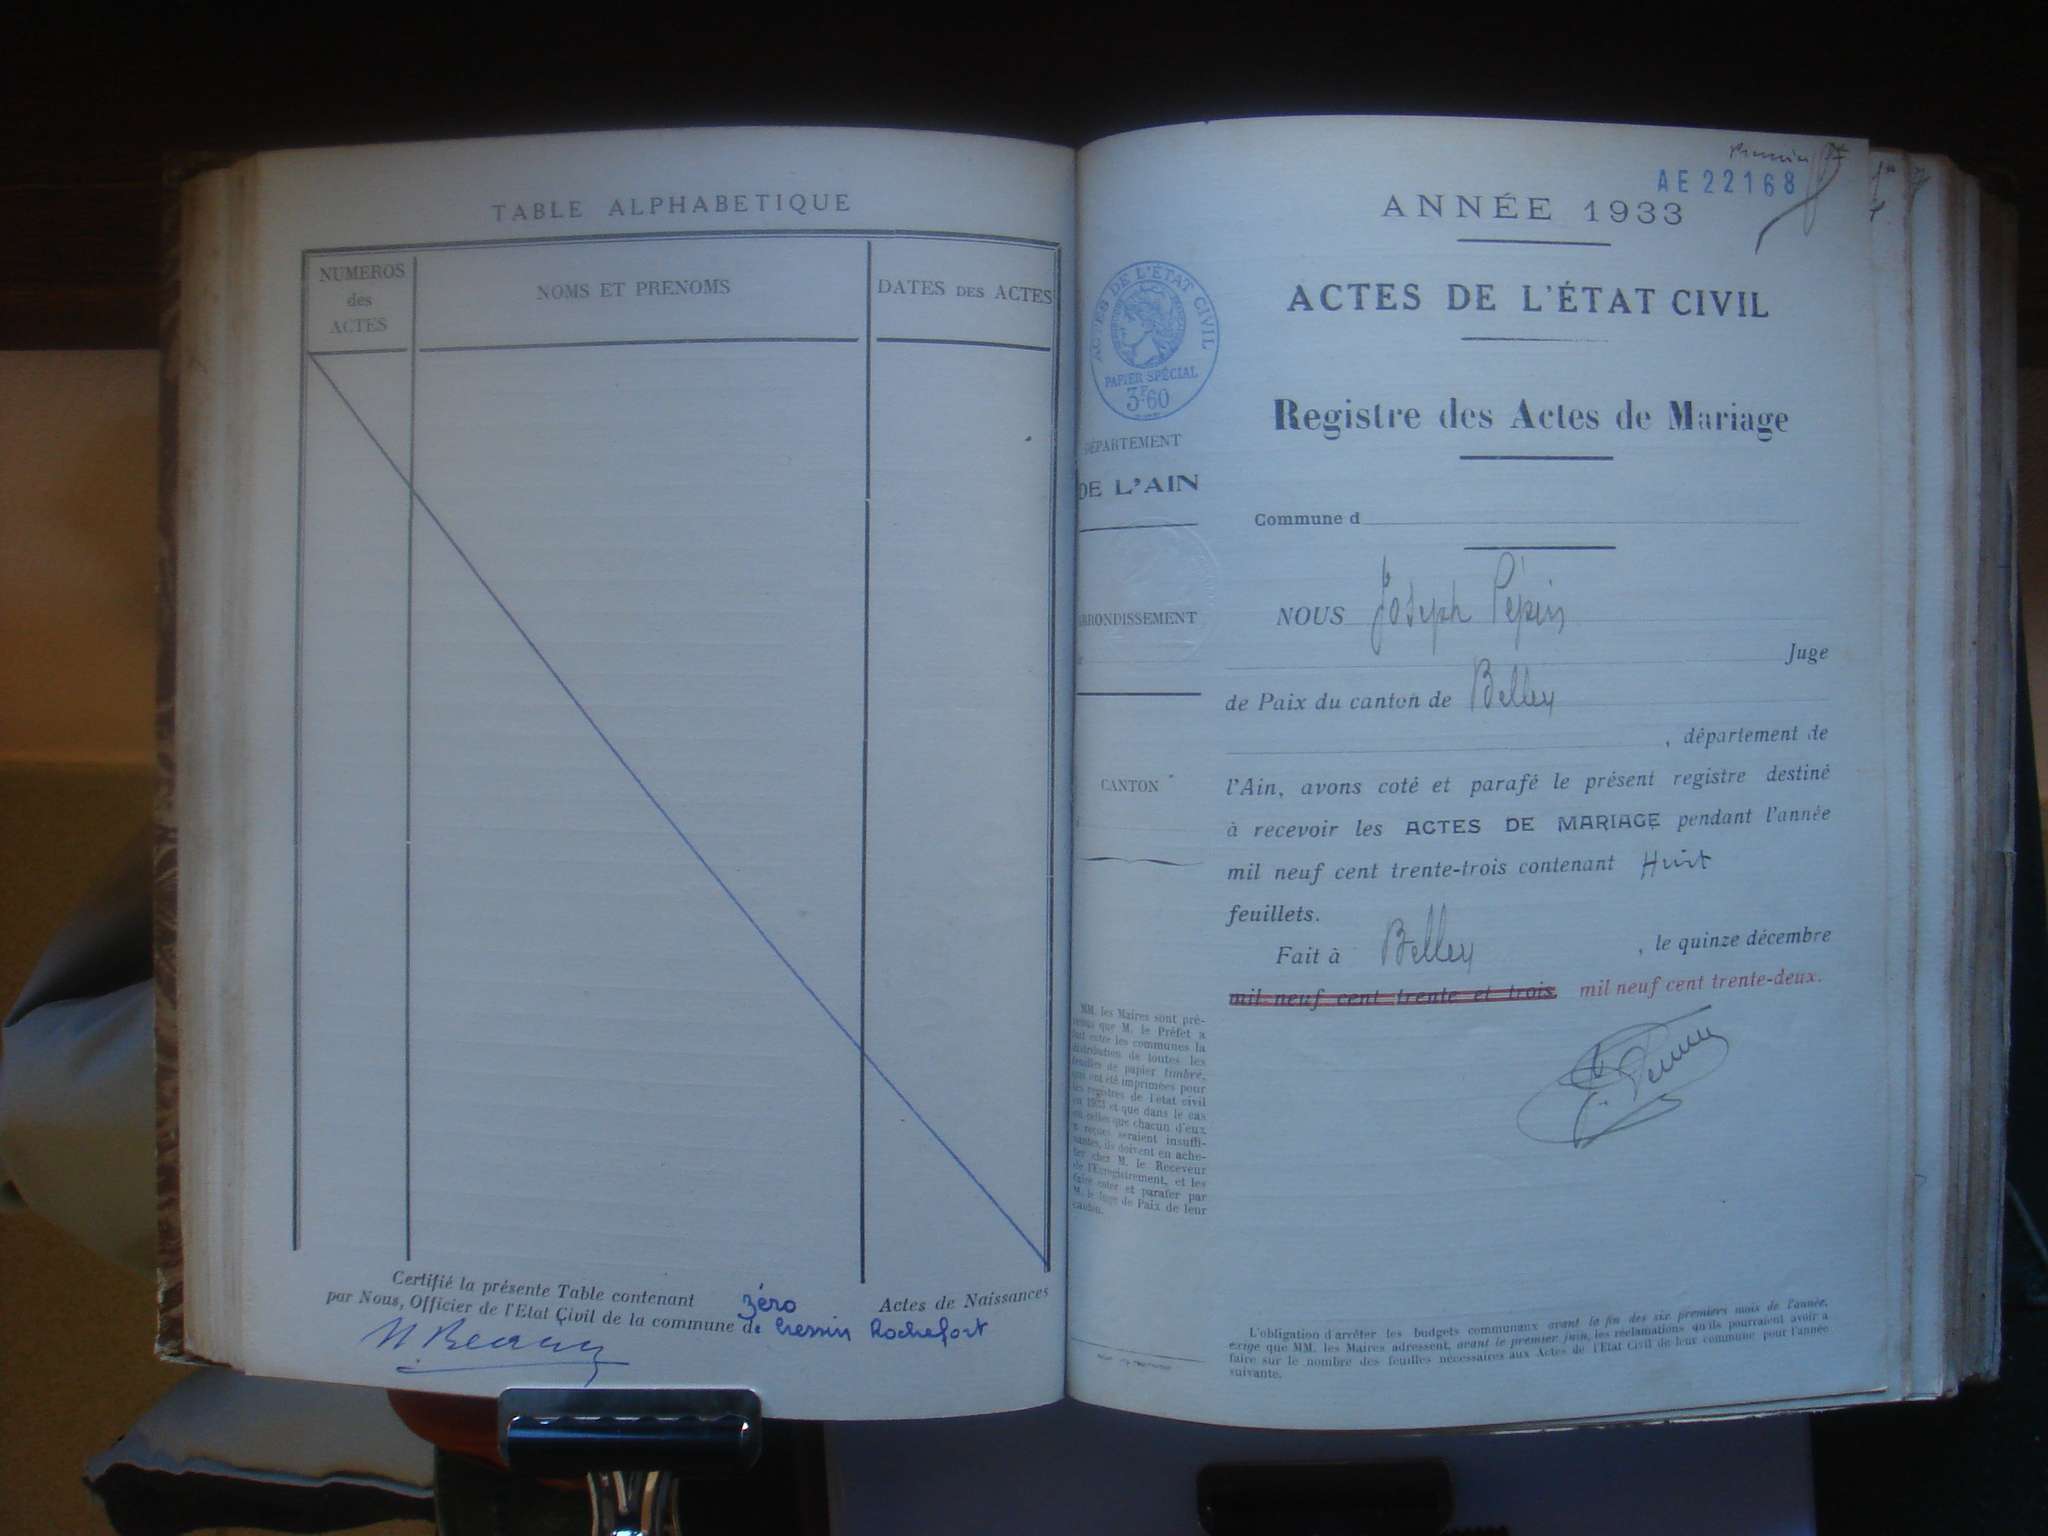 TABLE ALPHABETIQUE
NUMEROS
des
ACTES
NOMS ET PRENOMS
DATES DES ACTES
Certifié la présente Table contenant zéro Actes de Naissances
par Nous, Officier de l'Etat Çivil de la commune de Cressin Rochefort
AE 22168
ANNÉE 1933
ACTES DE L'ÉTAT CIVIL
Registre des Actes de Mariage
ACTES DE L'ÉTAT CIVIL
PAPIER SPÉCIAL
3F60
DÉPARTEMENT
DE L'AIN
ARRONDISSEMENT
CANTON
MM. les Maires sont pré-
venus que M. le Préfet a
fait entre les communes la
distribution de toutes les
feuilles de papier timbré,
qui ont été imprimées pour
les registres de l'état civil
en 1933 et que dans le cas
où celles que chacun d'eux
a reçues seraient insuffi-
santes, ils doivent en ache-
ter chez M. le Receveur
de l'Enregistrement, et les
faire coter et parafer par
M. le Juge de Paix de leur
canton.
Commune d
NOUS Joseph Pépin
Juge
de Paix du canton de Belley
, département de
l'Ain, avons coté et parafé le présent registre destiné
à recevoir les ACTES DE MARIAGE pendant l'année
mil neuf cent trente-trois contenant Huit
feuillets.
Fait à Belley , le quinze décembre
mil neuf cent trente et trois. mil neuf cent trente-deux.
L'obligation d'arrêter les budgets communaux avant la fin des six premiers mois de l'année,
exige que MM. les Maires adressent, avant le premier juin, les réclamations qu'ils pourraient avoir à
faire sur le nombre des feuilles nécessaires aux Actes de l'Etat Civil de leur commune pour l'année
suivante.